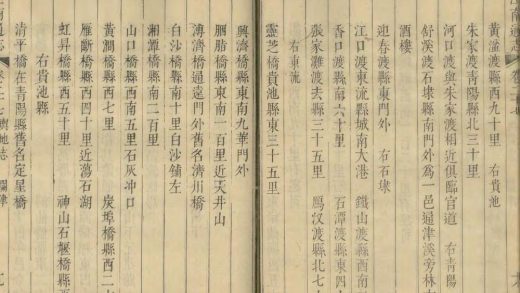 黃溢渡縣西九十里　右貴池
朱家渡青陽縣北三十里
河口渡與朱家渡相近俱臨官道　右青陽
舒溪渡石埭縣南門外爲一邑通津溪旁林
酒樓
迎春渡縣東門外　右石埭
江口渡東流縣城南大港　鐵山渡縣西南
香口渡縣南六十里　石潭渡縣東四
張家灘渡去縣三十五里　馬汊渡縣北七
右東流
靈芝橋貴池縣東三十五里
興濟橋縣東南九華門外
胭脂橋縣東南一百里近天井山
溥濟橋通遠門外舊名濟川橋
白沙橋縣南十里白沙舖左
湘潭橋縣南二百里
山口橋縣西南五里石灰冲口
黃澗橋縣西七里　炭埠橋縣西二
雁斷橋縣西四十里近蕩石湖
虹昇橋縣西五十里　神山石堰橋縣
右貴池縣
清平橋在青陽縣舊名定星橋